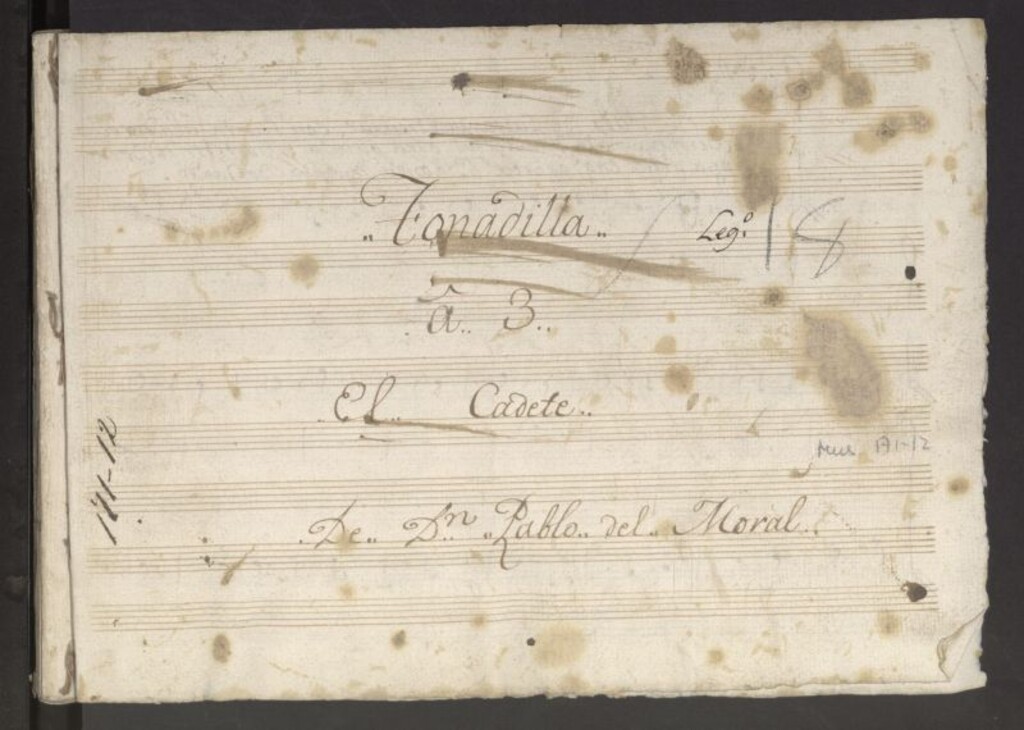 „Tonadilla„ Leg.º 18
. â.. 3..
. El.. Cadete..
Mus 171-12
171-12
.De.. D.n „Pablo.. del.. Moral..